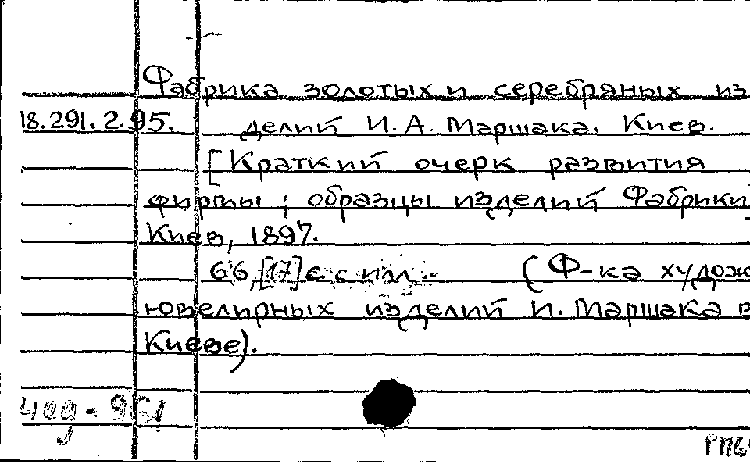 Фабрика золотых и серебряных из-
18.291.2.95. делий И.А. Маршака. Киев.
[Краткий очерк развития
фирмы; образцы изделий Фабрики]
Киев, 1897.
66,[17]с с илл. (Ф-ка худож
ювелирных изделий И. Маршака в
Киеве).